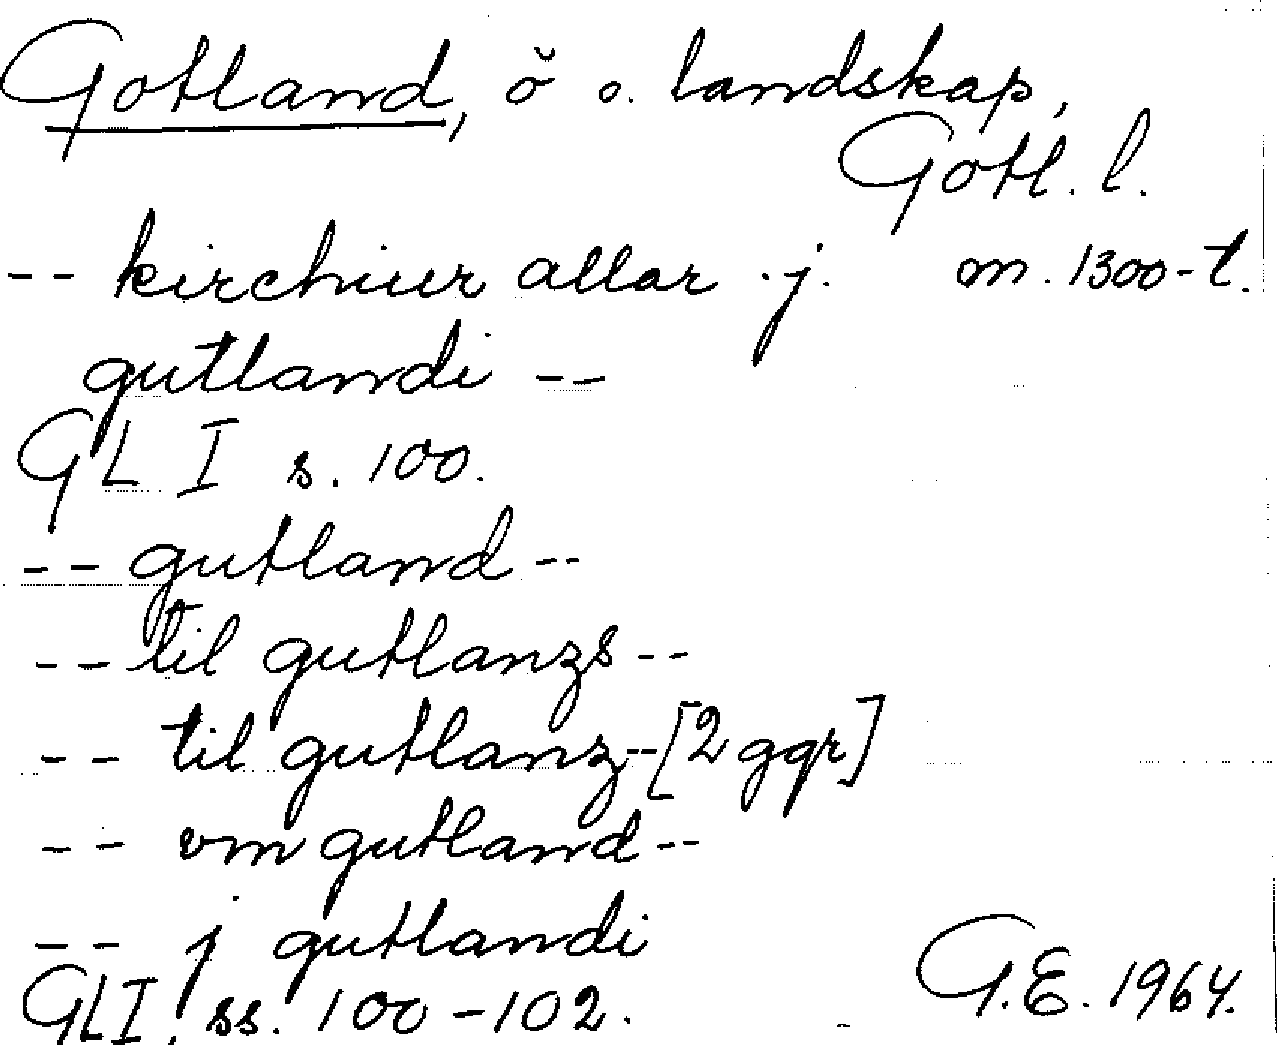 Gotland, ö o. landskap,
Gotl. l.
-- kirchiur allar .j. m. 1300-t.
gutlandi --
GL I s. 100.
-- gutland --
-- til gutlanzs --
-- til gutlanz -- [2 ggr]
-- vm gutland --
-- j gutlandi
GL I, ss. 100-102. G.E. 1964.